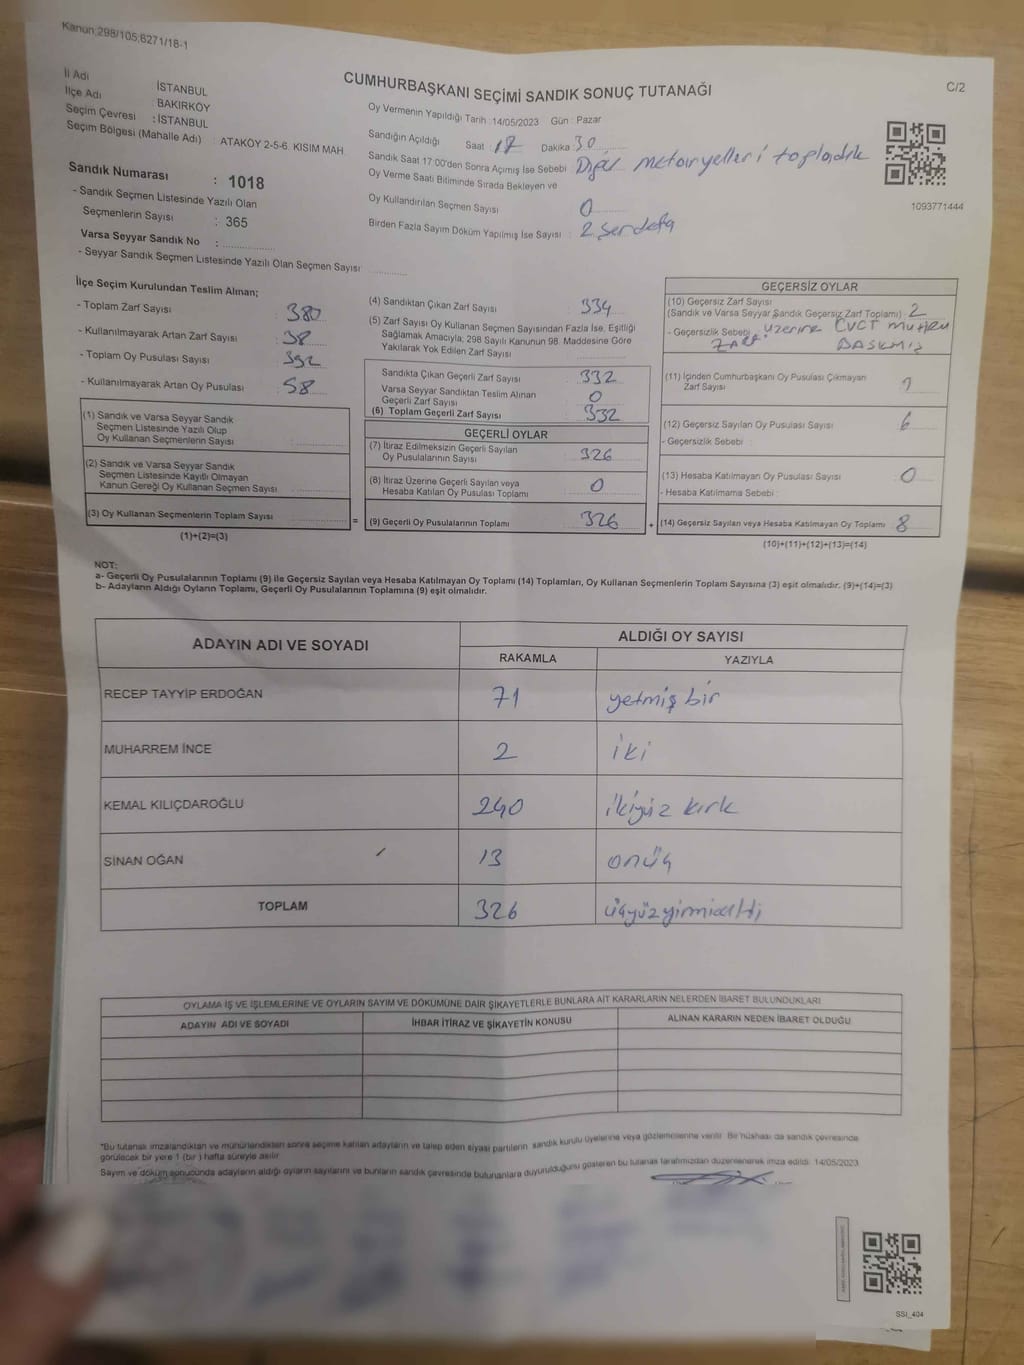 Kanun;298/105;6271/18-1
C/2
CUMHURBAŞKANI SEÇİMİ SANDIK SONUÇ TUTANAĞI
İl Adı : İSTANBUL
İlçe Adı : BAKIRKÖY
Seçim Çevresi : İSTANBUL
Seçim Bölgesi (Mahalle Adı) : ATAKÖY 2-5-6. KISIM MAH.
Sandık Numarası : 1018
- Sandık Seçmen Listesinde Yazılı Olan
Seçmenlerin Sayısı : 365
Varsa Seyyar Sandık No :
- Seyyar Sandık Seçmen Listesinde Yazılı Olan Seçmen Sayısı
Oy Vermenin Yapıldığı Tarih :14/05/2023 Gün : Pazar
Sandığın Açıldığı Saat : 17 Dakika 30
Sandık Saat 17:00'den Sonra Açımış İse Sebebi : Diğer materyelleri topladık
Oy Verme Saati Bitiminde Sırada Bekleyen ve
Oy Kullandırılan Seçmen Sayısı 0
Birden Fazla Sayım Döküm Yapılmış İse Sayısı : 2.şer defa
1093771444
İlçe Seçim Kurulundan Teslim Alınan;
- Toplam Zarf Sayısı 380
- Kullanılmayarak Artan Zarf Sayısı 38
- Toplam Oy Pusulası Sayısı 392
- Kullanılmayarak Artan Oy Pusulası 58
(1) Sandık ve Varsa Seyyar Sandık
Seçmen Listesinde Yazılı Olup
Oy Kullanan Seçmenlerin Sayısı
(2) Sandık ve Varsa Seyyar Sandık
Seçmen Listesinde Kayıtlı Olmayan
Kanun Gereği Oy Kullanan Seçmen Sayısı
(3) Oy Kullanan Seçmenlerin Toplam Sayısı =
(1)+(2)=(3)
(4) Sandıktan Çıkan Zarf Sayısı 334
(5) Zarf Sayısı Oy Kullanan Seçmen Sayısından Fazla İse, Eşitliği
Sağlamak Amacıyla, 298 Sayılı Kanunun 98. Maddesine Göre
Yakılarak Yok Edilen Zarf Sayısı
Sandıkta Çıkan Geçerli Zarf Sayısı 332
Varsa Seyyar Sandıktan Teslim Alınan
Geçerli Zarf Sayısı 0
(6) Toplam Geçerli Zarf Sayısı 332
GEÇERLİ OYLAR
(7) İtiraz Edilmeksizin Geçerli Sayılan
Oy Pusulalarının Sayısı 326
(8) İtiraz Üzerine Geçerli Sayılan veya
Hesaba Katılan Oy Pusulası Toplamı 0
(9) Geçerli Oy Pusulalarının Toplamı 326 +
GEÇERSİZ OYLAR
(10) Geçersiz Zarf Sayısı
(Sandık ve Varsa Seyyar Sandık Geçersiz Zarf Toplamı) 2
- Geçersizlik Sebebi : üzerine EVET MÜHRÜ
ZARF BASKMIŞ
(11) İçinden Cumhurbaşkanı Oy Pusulası Çıkmayan
Zarf Sayısı
(12) Geçersiz Sayılan Oy Pusulası Sayısı 6
- Geçersizlik Sebebi :
(13) Hesaba Katılmayan Oy Pusulası Sayısı 0
- Hesaba Katılmama Sebebi :
(14) Geçersiz Sayılan veya Hesaba Katılmayan Oy Toplamı 8
(10)+(11)+(12)+(13)=(14)
NOT:
a- Geçerli Oy Pusulalarının Toplamı (9) ile Geçersiz Sayılan veya Hesaba Katılmayan Oy Toplamı (14) Toplamları, Oy Kullanan Seçmenlerin Toplam Sayısına (3) eşit olmalıdır. (9)+(14)=(3)
b- Adayların Aldığı Oyların Toplamı, Geçerli Oy Pusulalarının Toplamına (9) eşit olmalıdır.
ADAYIN ADI VE SOYADI ALDIĞI OY SAYISI
RAKAMLA YAZIYLA
RECEP TAYYİP ERDOĞAN 71 yetmiş bir
MUHARREM İNCE 2 iki
KEMAL KILIÇDAROĞLU 240 ikiyüz kırk
SİNAN OĞAN 13 onüç
TOPLAM 326 üçyüzyirmialtı
OYLAMA İŞ VE İŞLEMLERİNE VE OYLARIN SAYIM VE DÖKÜMÜNE DAİR ŞİKAYETLERLE BUNLARA AİT KARARLARIN NELERDEN İBARET BULUNDUKLARI
ADAYIN ADI VE SOYADI İHBAR İTİRAZ VE ŞİKAYETİN KONUSU ALINAN KARARIN NEDEN İBARET OLDUĞU
*Bu tutanak imzalandıktan ve mühürlendikten sonra seçime katılan adayların ve talep eden siyasi partilerin sandık kurulu üyelerine veya gözlemcilerine verilir. Bir nüshası da sandık çevresinde
görülecek bir yere 1 (bir ) hafta süreyle asılır.
Sayım ve döküm sonucunda adayların aldığı oyların sayılarını ve bunların sandık çevresinde bulunanlara duyurulduğunu gösteren bu tutanak tarafımızdan düzenlenerek imza edildi. 14/05/2023
SSI_404